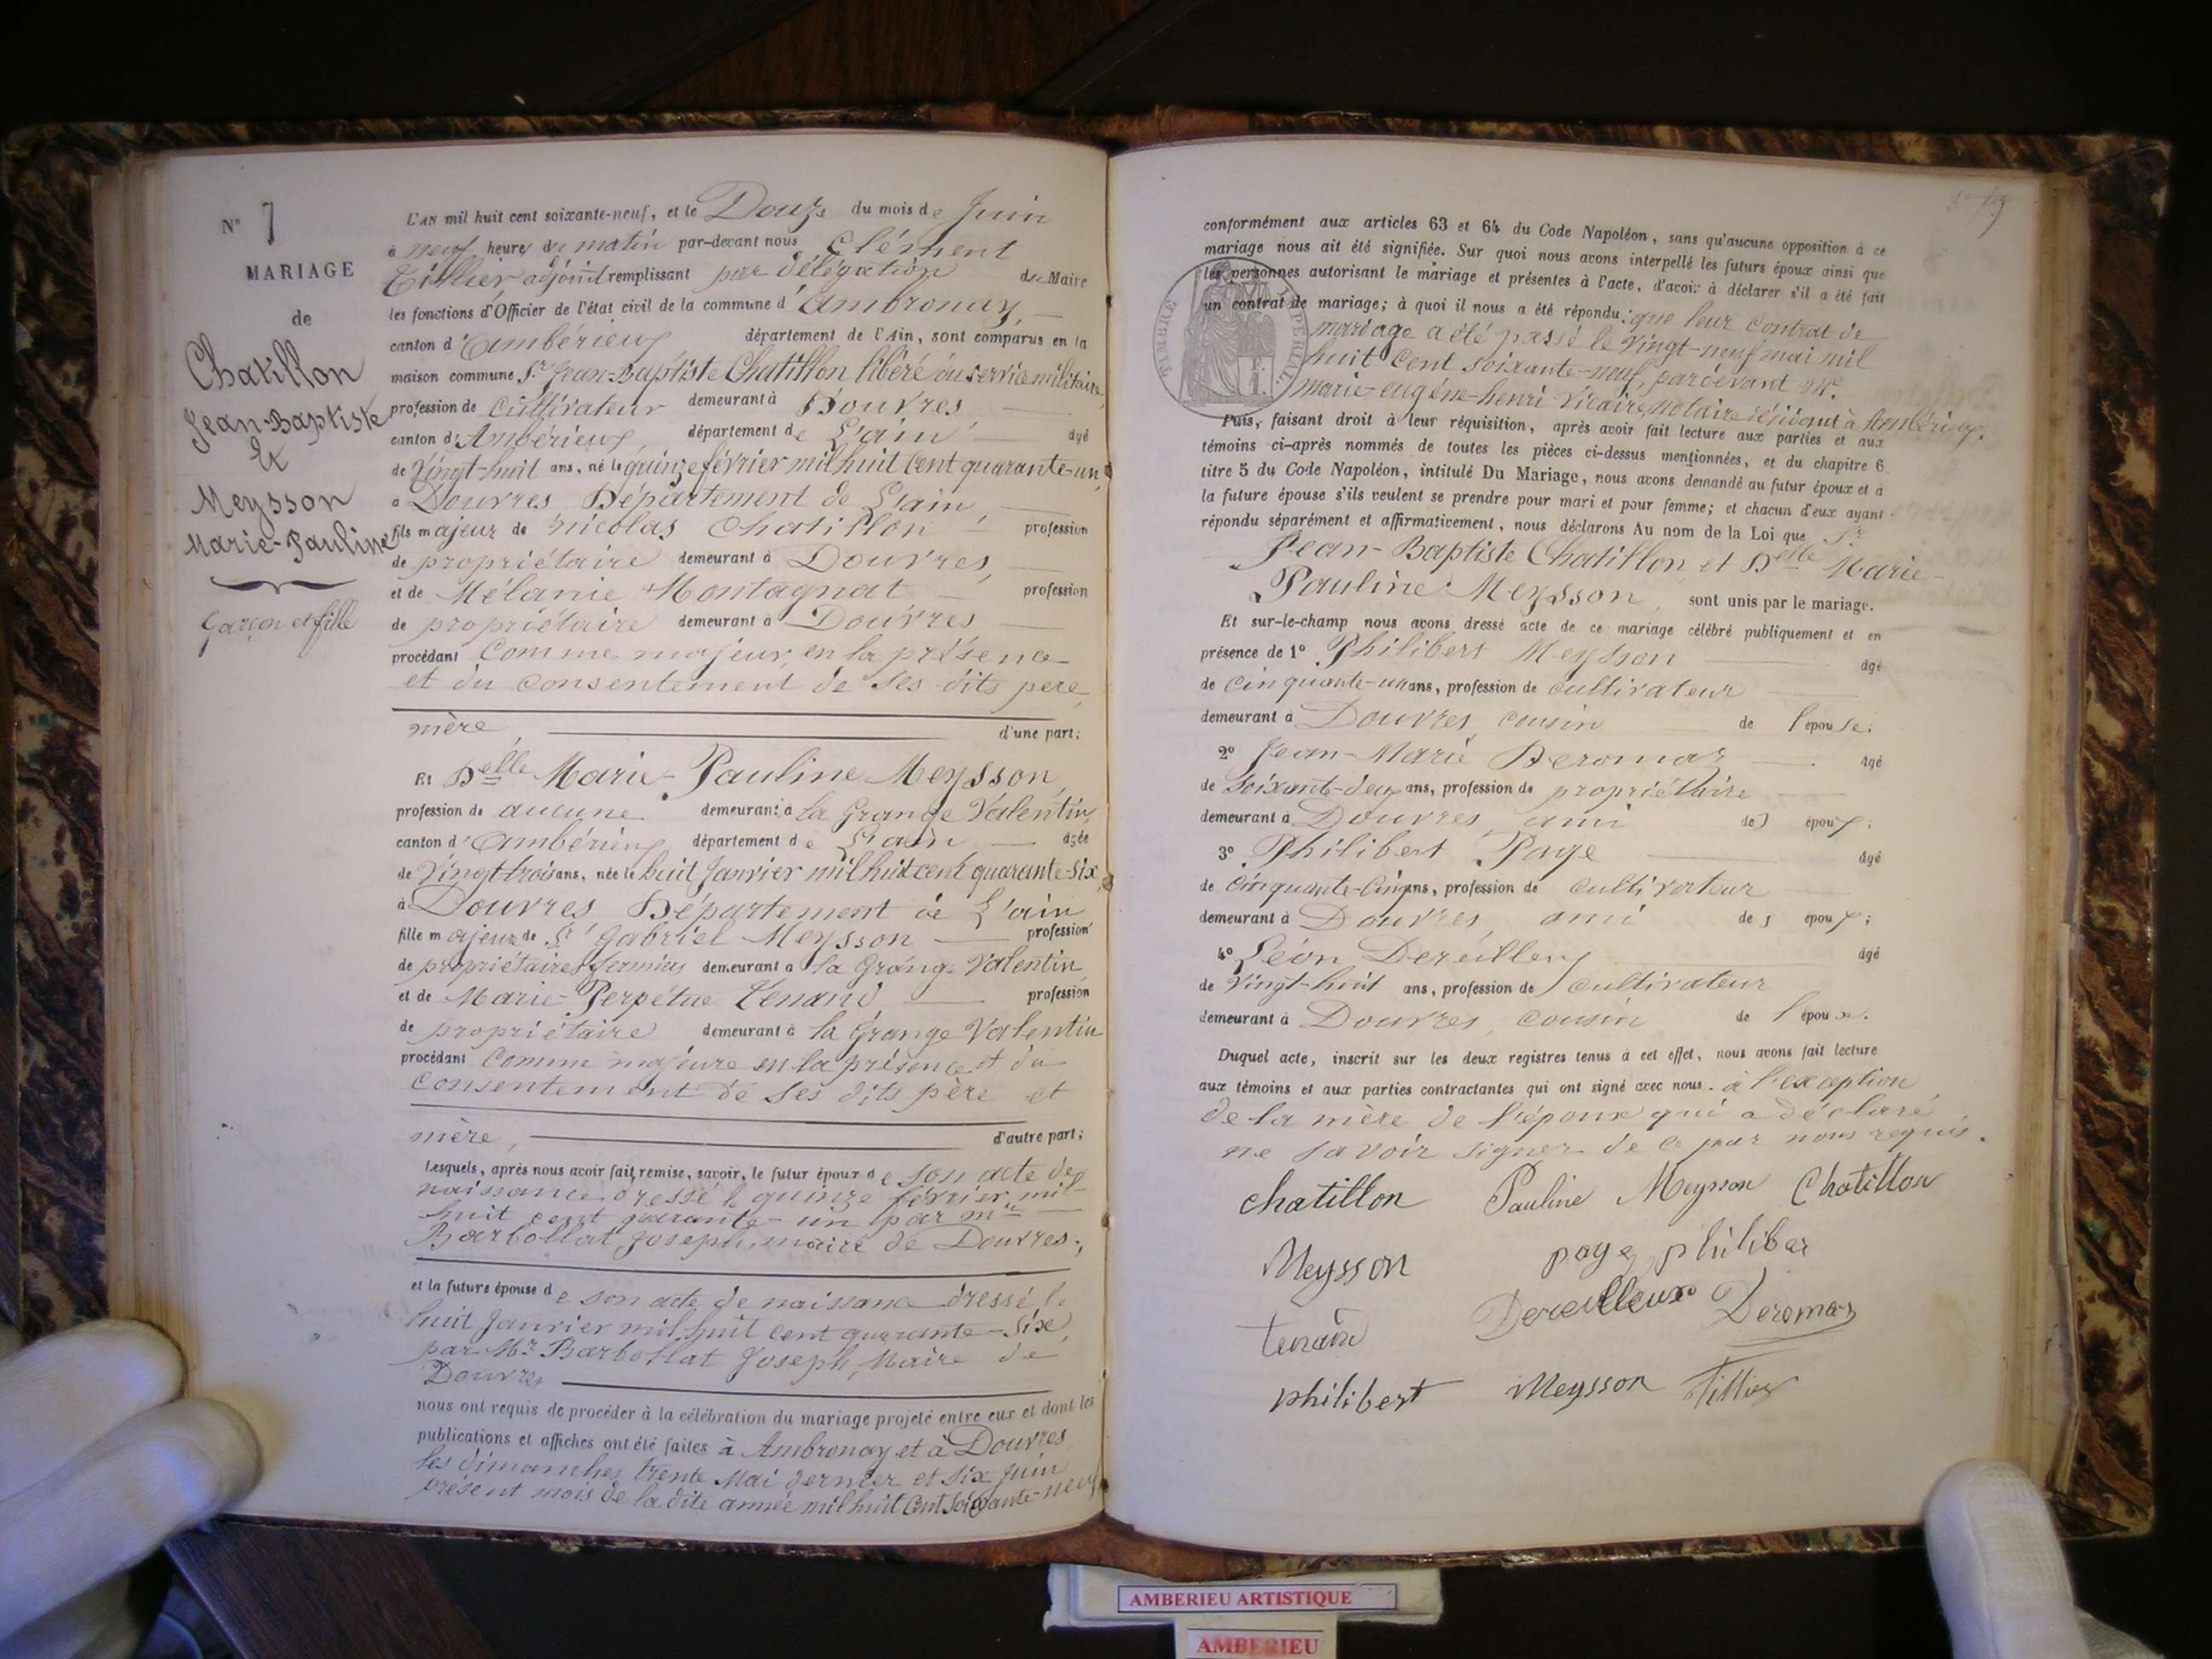 N° 7
MARIAGE
de
Chatillon
Jean-Baptiste
&
Meysson
Marie-Pauline
Garçon et fille
L'AN mil huit cent soixante-neuf, et le Douze du mois de Juin
à neuf heures du matin par-devant nous Clément
Tillier adjoint remplissant par délégation du Maire
les fonctions d'Officier de l'état civil de la commune d'Ambronay,
canton d'Ambérieux département de l'Ain, sont comparus en la
maison commune Sr Jean-Baptiste Chatillon libéré du service militaire,
profession de Cultivateur demeurant à Douvres
canton d'Ambérieux, département de L'ain âgé
de Vingt-huit ans, né le quinze février mil huit Cent quarante-un,
à Douvres, Département de L'ain,
fils majeur de Nicolas Chatillon profession
de propriétaire demeurant à Douvres,
et de Mélanie Montagnat profession
de propriétaire demeurant à Douvres
procédant Comme majeur, en la présence
et du consentement de ses dits père,
mère, d'une part;
Et Delle Marie-Pauline Meysson,
profession de aucune demeurant à la Grange Valentin,
canton d'Ambérieux département de L'ain âgée
de Vingt-trois ans, née le huit Janvier mil huit cent quarante-six,
à Douvres, Département de L'ain
fille majeure de Sr Gabriel Meysson profession
de propriétaires fermiers demeurant à la Grange Valentin
et de Marie-Perpétue Tenand profession
de propriétaire demeurant à la Grange Valentin
procédant Comme majeure en la présence et du
consentement de ses dits père et
mère, d'autre part;
Lesquels, après nous avoir fait remise, savoir, le futur époux de son acte de
naissance dressé le quinze février mil
huit cent quarante-un par Mr
Barbollat Joseph, maire de Douvres;
et la future épouse de son acte de naissance dressé le
huit Janvier mil huit cent quarante-six,
par Mr Barbollat Joseph, Maire de
Douvres
nous ont requis de procéder à la célébration du mariage projeté entre eux et dont les
publications et affiches ont été faites à Ambronay et à Douvres
les dimanches trente Mai dernier et six Juin
présent mois de la dite année mil huit Cent soixante-neuf
conformément aux articles 63 et 64 du Code Napoléon, sans qu'aucune opposition à ce
mariage nous ait été signifiée. Sur quoi nous avons interpellé les futurs époux ainsi que
les personnes autorisant le mariage et présentes à l'acte, d'avoir à déclarer s'il a été fait
un contrat de mariage; à quoi il nous a été répondu: que leur Contrat de
mariage a été passé le Vingt-neuf mai mil
huit Cent soixante-neuf, pardevant Me
Marie-eugène-henri Vicaire, notaire résidant à Ambérieux.
TIMBRE IMPERIAL
Puis, faisant droit à leur réquisition, après avoir fait lecture aux parties et aux
témoins ci-après nommés de toutes les pièces ci-dessus mentionnées, et du chapitre 6
titre 5 du Code Napoléon, intitulé Du Mariage, nous avons demandé au futur époux et à
la future épouse s'ils veulent se prendre pour mari et pour femme; et chacun d'eux ayant
répondu séparément et affirmativement, nous déclarons Au nom de la Loi que Sr
Jean-Baptiste Chatillon et Delle Marie-
Pauline Meysson sont unis par le mariage.
Et sur-le-champ nous avons dressé acte de ce mariage célébré publiquement et en
présence de 1° Philibert Meysson âgé
de Cinquante-un ans, profession de cultivateur
demeurant à Douvres, cousin de l'épouse;
2° Jean-Marie Deromas âgé
de Soixante-deux ans, profession de propriétaire
demeurant à Douvres, ami des époux;
3° Philibert Paye âgé
de Cinquante-Cinq ans, profession de Cultivateur
demeurant à Douvres, ami des époux;
4° Léon Dereilleux âgé
de Vingt-huit ans, profession de cultivateur
demeurant à Douvres, cousin de l'épouse.
Duquel acte, inscrit sur les deux registres tenus à cet effet, nous avons fait lecture
aux témoins et aux parties contractantes qui ont signé avec nous. à l'exception
de la mère de l'époux qui a déclaré
ne savoir signer de ce par nous requis.
chatillon Pauline Meysson Chatillon
Meysson paye philiber
tenand Dereilleux Deromas
philibert Meysson Tillier
AMBERIEU ARTISTIQUE
AMBERIEU